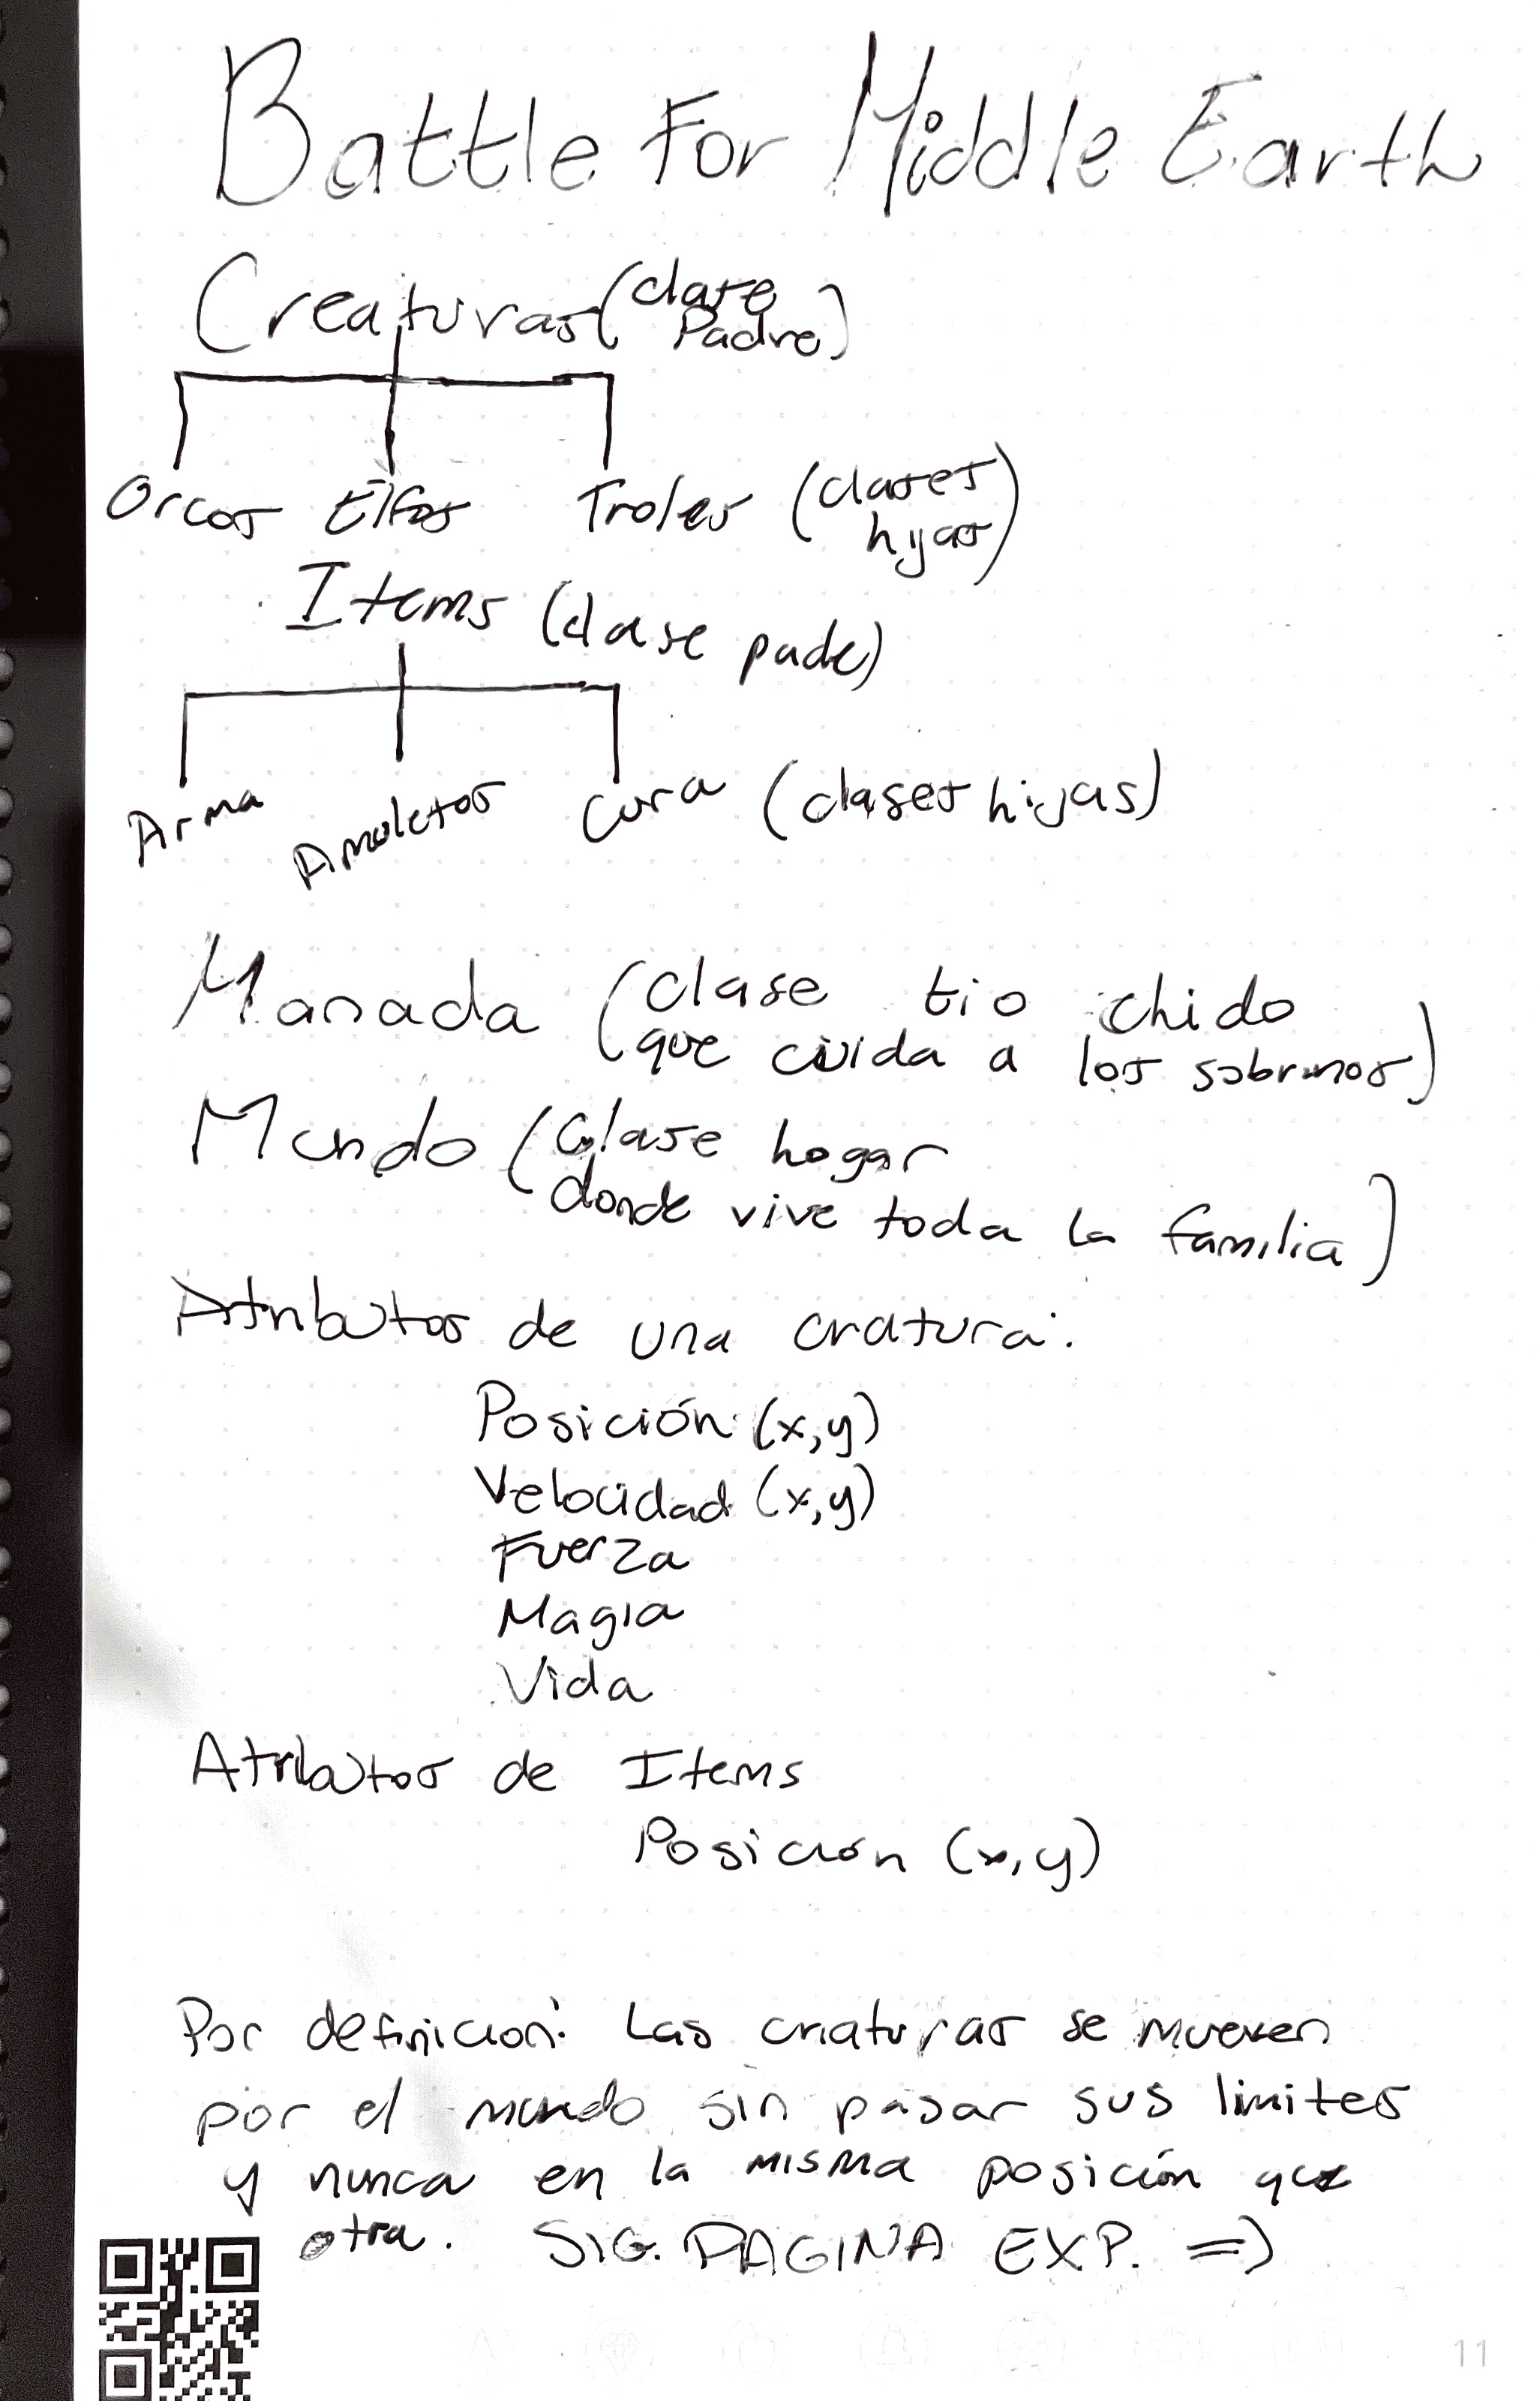 Battle For Middle Earth
Creaturas (clase
Padre)
Orcos Elfos Troles (clases
hijas)
Items (clase pade)
Arma Amuletos Cura (clases hijas)
Manada (clase tio chido
que cuida a los sobrinos)
Mundo (Clase hogar
donde vive toda la familia)
Atributos de una cratura:
Posición (x,y)
Velocidad (x,y)
Fuerza
Magia
Vida
Atributos de Items
Posición (x,y)
Por definicion: Las criaturas se mueven
por el mundo sin pasar sus limites
y nunca en la misma posición que
otra. SIG. PAGINA EXP. =)
11